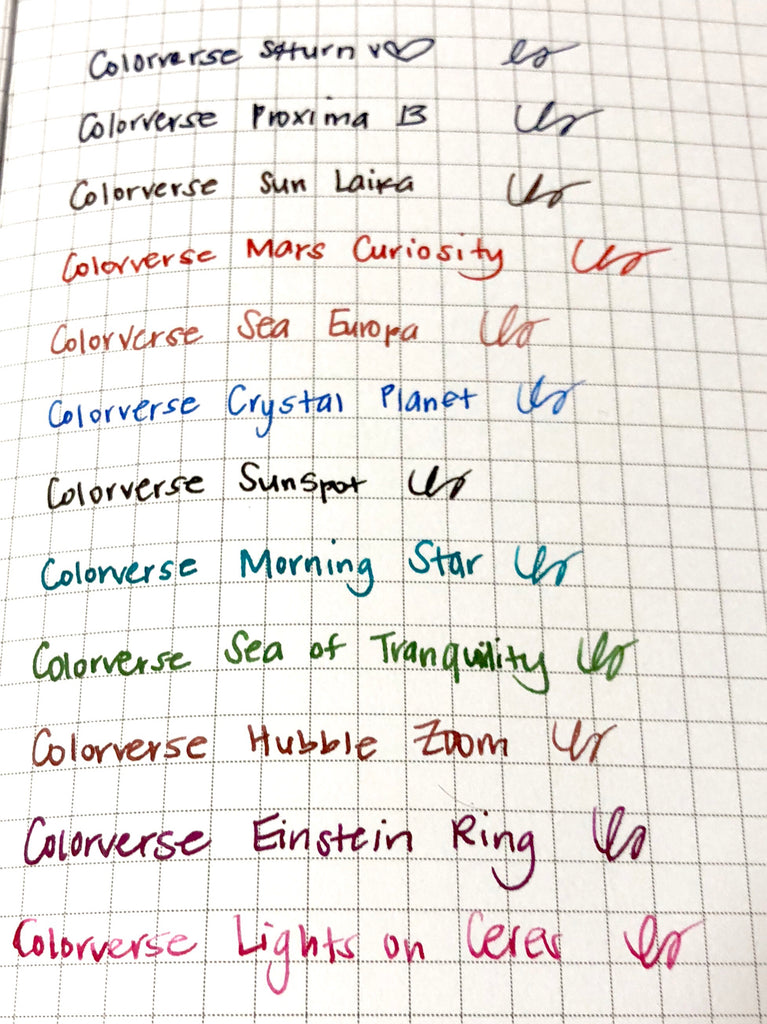 Colorverse Saturn V♡
Colorverse Proxima B
Colorverse Sun Laika
Colorverse Mars Curiosity
Colorverse Sea Europa
Colorverse Crystal Planet
Colorverse Sunspot
Colorverse Morning Star
Colorverse Sea of Tranquility
Colorverse Hubble Zoom
Colorverse Einstein Ring
Colorverse Lights on Ceres